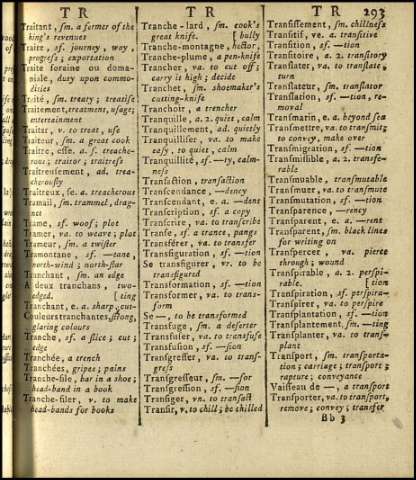 T R
T R
T R
293
Traitant, sm. a farmer of the
king's revenues
Traite, sf. journey, way,
progress; exportation
Traite foraine ou doma-
niale, duty upon commo-
dities
Traité, sm. treaty; treatise
Traitement, treatment, usage;
entertainment
Traiter, v. to treat, use
Traiteur, sm. a great cook
Traitre, esse, a. s. treache-
rous; traitor; traitress
Traitreusement, ad. trea-
cherously
Traitreux, se, a. treacherous
Tramail, sm. trammel, drag-
net
Trame, sf. woof; plot
Tramer, va. to weave; plot
Trameur, sm. a twister
Tramontane, sf. —tane,
north-wind; north-star
Tranchant, sm. an edge
A deux tranchans, two-
edged. [ting
Tranchant, e. a. sharp, cut-
Couleurs tranchantes, strong,
glaring colours
Tranche, sf. a slice; cut;
edge
Tranchée, a trench
Tranchées, gripes; pains
Tranche-file, bar in a shoe;
head-band in a book
Tranche-filer, v. to make
head-bands for books
Tranche-lard, sm. cook's
great knife. [bully
Tranche-montagne, hector,
Tranche-plume, a pen-knife
Trancher, va. to cut off;
carry it high; decide
Tranchet, sm. shoemaker's
cutting-knife
Tranchoir, a trencher
Tranquille, a. 2. quiet, calm
Tranquillement, ad. quietly
Tranquilliser, va. to make
easy, to quiet, calm
Tranquillité, sf. —ty, calm-
ness
Transaction, transaction
Transcendance, —dency
Transcendant, e. a. —dent
Transcription, sf. a copy
Transcrire, va. to transcribe
Transe, sf. a trance, pangs
Transférer, va. to transfer
Transfiguration, sf. —tion
Se transfigurer, vr. to be
transfigured
Transformation, sf. —tion
Transformer, va. to trans-
form
Se —, to be transformed
Transfuge, sm. a deserter
Transfuser, va. to transfuse
Transfusion, sf. —sion
Transgresser, va. to trans-
gress
Transgresseur, sm. —sor
Transgression, sf. —sion
Transiger, vn. to transact
Transir, v. to chill; be chilled
Transissement, sm. chillness
Transitif, ve. a. transitive
Transition, sf. —tion
Transitoire, a. 2. transitory
Translater, va. to translate,
turn
Translateur, sm. translator
Translation, sf. —tion, re-
moval
Transmarin, e. a. beyond sea
Transmettre, va. to transmit,
to convey, make over
Transmigration, sf. —tion
Transmissible, a. 2. transfe-
rable
Transmuable, transmutable
Transmuer, va. to transmute
Transmutation, sf. —tion
Transparence, —rency
Transparent, e. a. —rent
Transparent, sm. black lines
for writing on
Transpercer, va. pierce
through; wound
Transpirable, a. 2. perspi-
rable. [tion
Transpiration, sf. perspira-
Transpirer, va. to perspire
Transplantation, sf. —tion
Transplantement, sm. —ting
Transplanter, va. to trans-
plant
Transport, sm. transporta-
tion; carriage; transport;
rapture; conveyance
Vaisseau de —, a transport
Transporter, va. to transport,
remove; convey; transfer
Bb 3